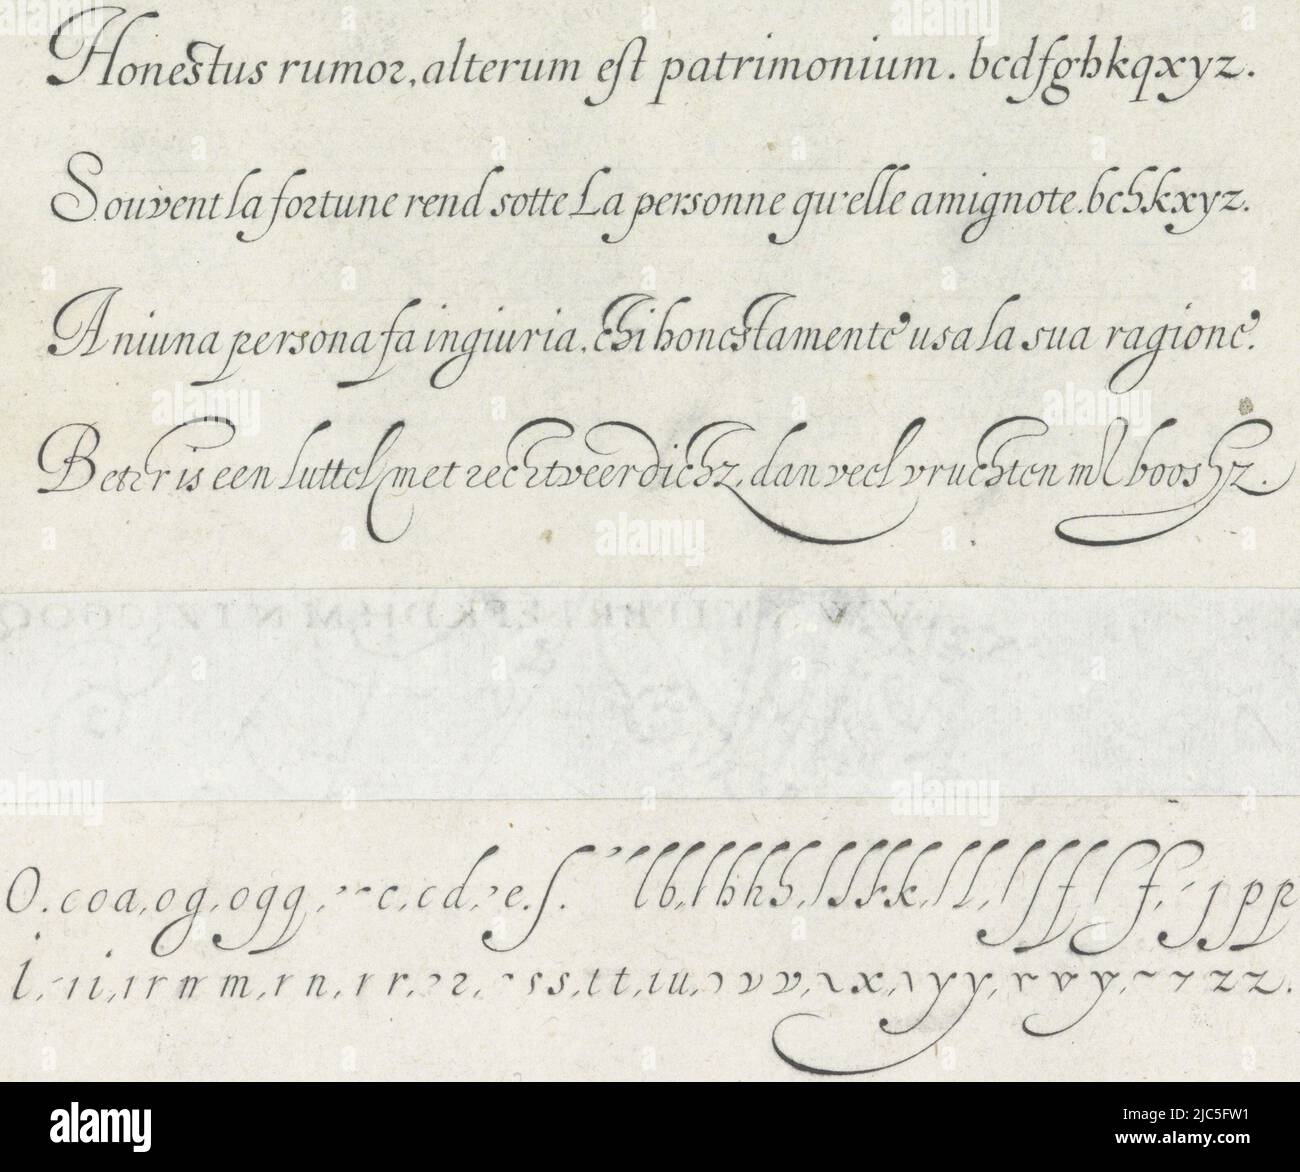 Honestus rumor, alterum est patrimonium. bcdfghkqxyz.
Souvent la fortune rend sotte La personne qu'elle amignote. bchkxyz.
A niuna persona fa ingiuria, chi honestamente usa la sua ragione.
Beter is een luttel met rechtveerdichz, dan veel vruchten mł booshz.
O. c o a, o g, o g q, c, c d, e. s. l b, l b h h, l l s k k, l l, l f f f, j p p
i, i i, ı r n m, r n, r r, 2 2, s s, t t, ı u, v v, x, y y, r v y, z z.
alamy
Image ID: 2JC5FW1
www.alamy.com